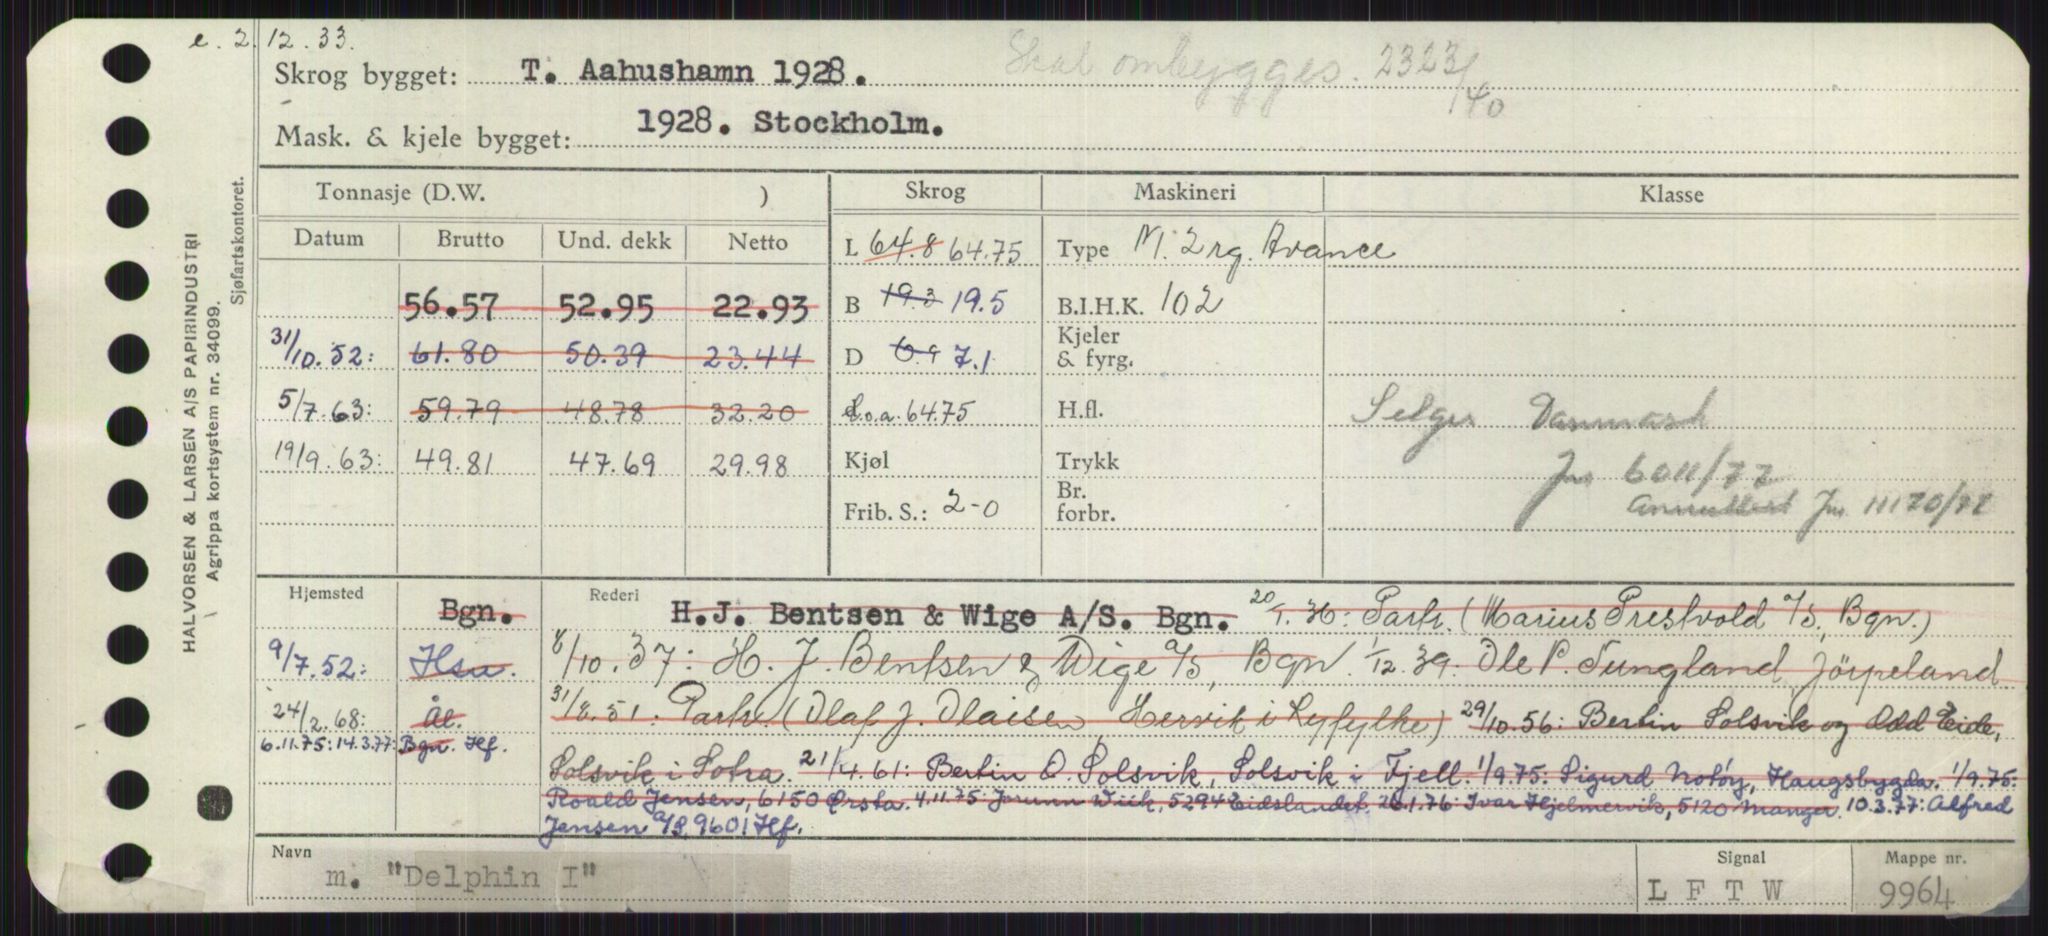 e. 2.12.33.
Skrog bygget: T. Aahushamn 1928. Skal ombygges. 2323/40
Mask. & kjele bygget: 1928. Stockholm.
HALVORSEN & LARSEN A/S PAPIRINDUSTRI
Agrippa kortsystem nr. 34099.
Sjøfartskontoret.
Tonnasje (D.W. ) Skrog Maskineri Klasse
Datum Brutto Und. dekk Netto
L 64.8 64.75 Type M. 2 rg. Avance
56.57 52.95 22.93 B 19.3 19.5 B.I.H.K. 102
31/10.52: 61.80 50.39 23.44 D 6.9 7.1 Kjeler & fyrg.
5/7.63: 59.79 48.78 32.20 L.o.a. 64.75 H.fl. Selges Danmark
19/9.63: 49.81 47.69 29.98 Kjøl Trykk Jnr 6011/77
Frib. S.: 2-0 Br. forbr. annullert Jnr 11170/77
Hjemsted Bgn. Rederi H.J. Bentsen & Wige A/S. Bgn. 20/1.36: Partr. (Marius Prestvold a/s, Bgn.)
9/7.52: Hsu. 8/10.37: H. J. Bentsen & Wige a/s, Bgn. 1/12.39. Ole P. Tungland, Jörpeland
24/2.68: Ål. 31/8.51: Partr. (Olaf J. Olaisen, Hervik i Ryfylke) 29/10.56: Bertin Solsvik og Odd Eide,
6.11.75: 14.3.77: Bgn. Hf. Solsvik i Sotra. 21/4.61: Bertin O. Solsvik, Solsvik i Fjell. 1/9.75: Sigurd Notöy, Haugsbygda. 1/9.75:
Roald Jensen, 6150 Ørsta. 4.11.75: Jorunn Wiik, 5294 Eidslandet. 26.1.76: Ivar Hjelmervik, 5120 Manger. 10.3.77: Alfred
Jensen a/s, 9601 Hf.
Navn m. "Delphin I" Signal L F T W Mappe nr. 9964